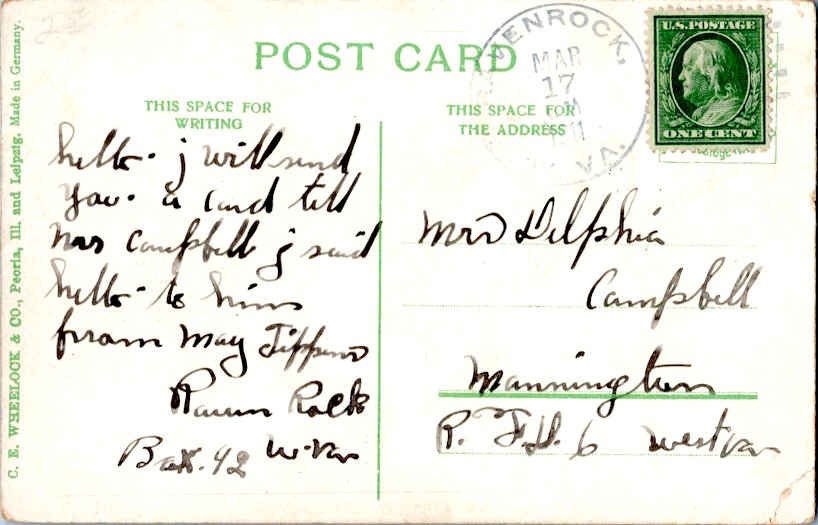 POST CARD
RAVENROCK,
MAR
17
M
1911
VA.
U.S. POSTAGE
ONE CENT
THIS SPACE FOR
WRITING
THIS SPACE FOR
THE ADDRESS
hello. j will send
you. a card tell
mrs Campbell j said
hello to hims
fraam may Tippins
Raven Rock
Box. 92 W. Va
Mrs Delphia
Campbell
Mannington
R. F.D. 6 west va
C. E. WHEELOCK & CO., Peoria, Ill. and Leipzig. Made in Germany.